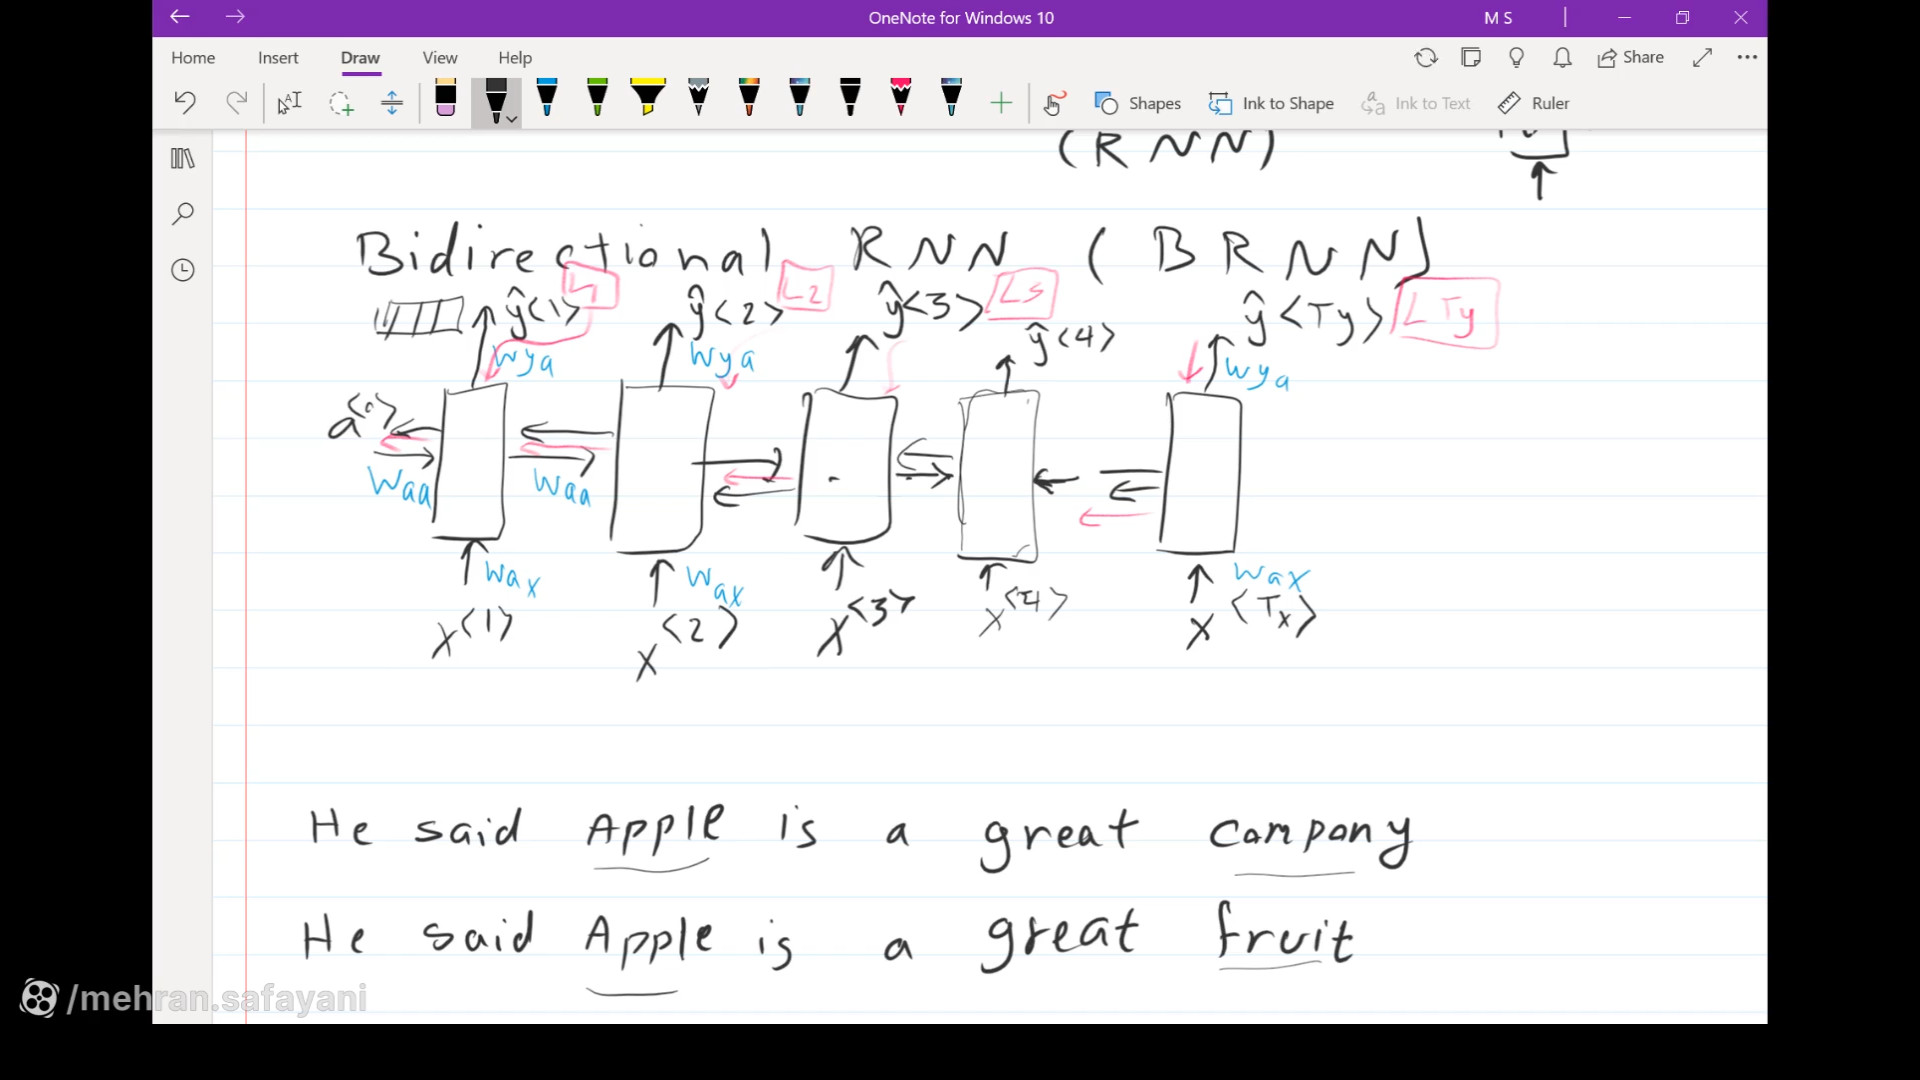 OneNote for Windows 10
M S
Home Insert Draw View Help
Share
Shapes Ink to Shape Ink to Text Ruler
(RNN)
Bidirectional RNN (BRNN)
ŷ<1> L1 ŷ<2> L2 ŷ<3> L3 ŷ<4> ŷ<Ty> LTy
Wya Wya Wya
a<0>
Waa Waa
Wax Wax Wax
x<1> x<2> x<3> x<4> x<Tx>
He said Apple is a great company
He said Apple is a great fruit
/mehran.safayani